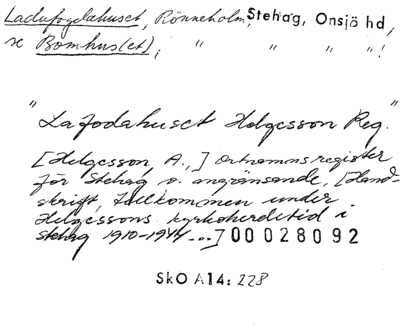 Ladufogdahuset, Rönneholm, Stehag, Onsjö hd,
se Bomhus(et); " " " "!
"Lafodahuset Helgesson Reg."
[Helgesson, A.,] Ortnamnsregister
för Stehag o. angränsande, [Hand-
skrift, tillkommen under
Helgessons kyrkoherdetid i
Stehag 1910-1944 ...] 00028092
SkO A14: 228